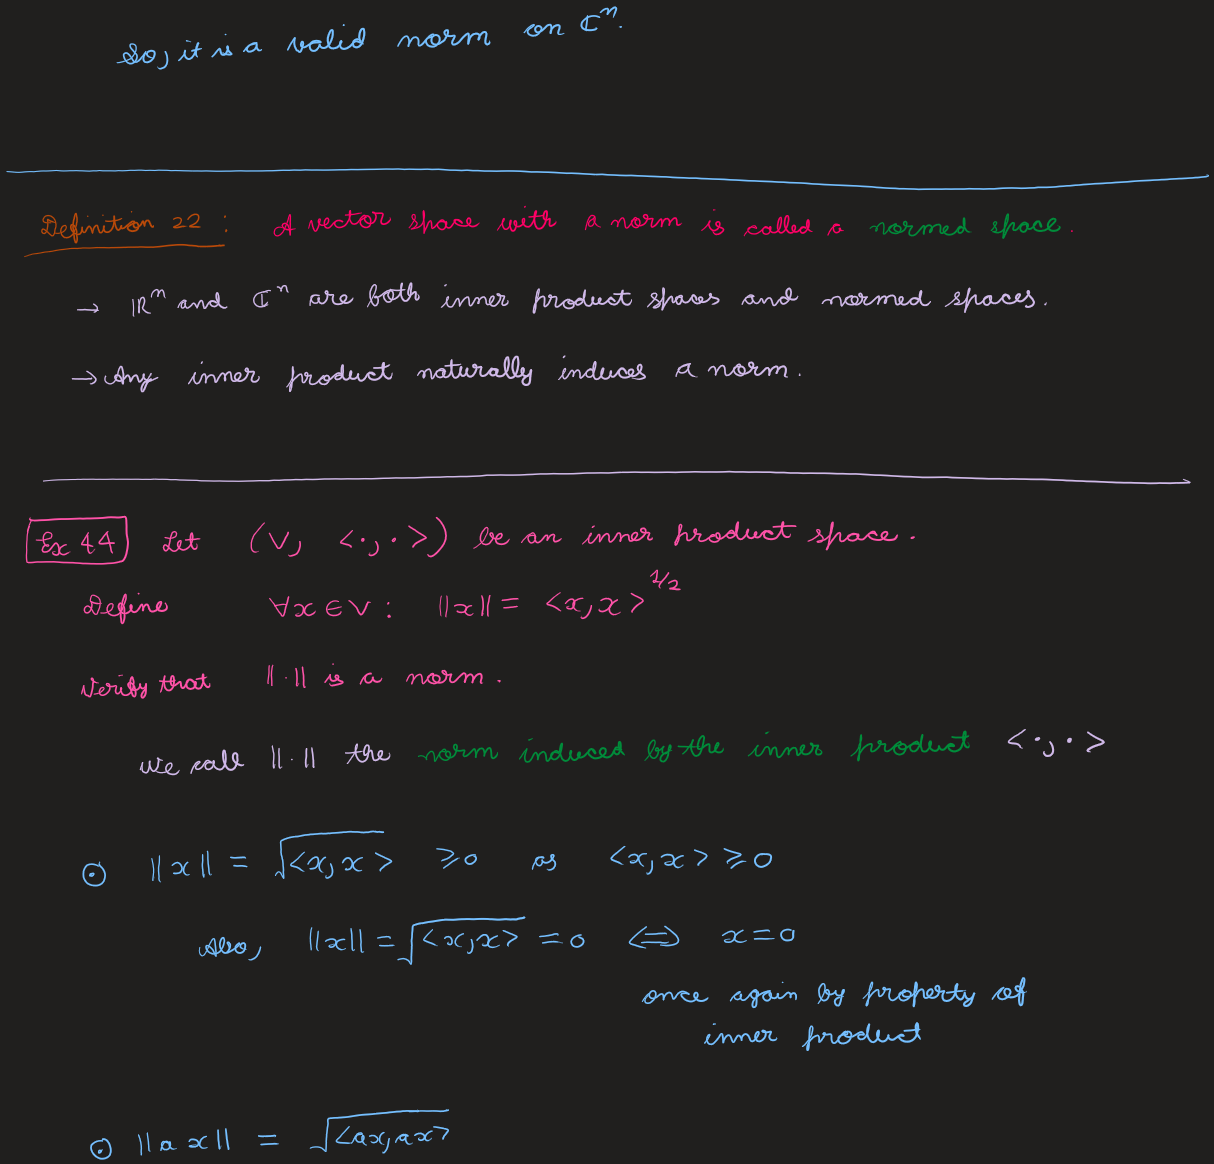 So, it is a valid norm on ℂⁿ.
Definition 22 : A vector space with a norm is called a normed space.
→ ℝⁿ and ℂⁿ are both inner product spaces and normed spaces.
→ Any inner product naturally induces a norm.
Ex 44 Let (V, <·,·>) be an inner product space.
Define ∀x∈V : ||x|| = <x,x>^1/2
Verify that ||·|| is a norm.
We call ||·|| the norm induced by the inner product <·,·>
⊙ ||x|| = √<x,x> ≥0 as <x,x> ≥0
Also, ||x|| = √<x,x> = 0 ⟺ x=0
once again by property of
inner product
⊙ ||ax|| = √<ax,ax>